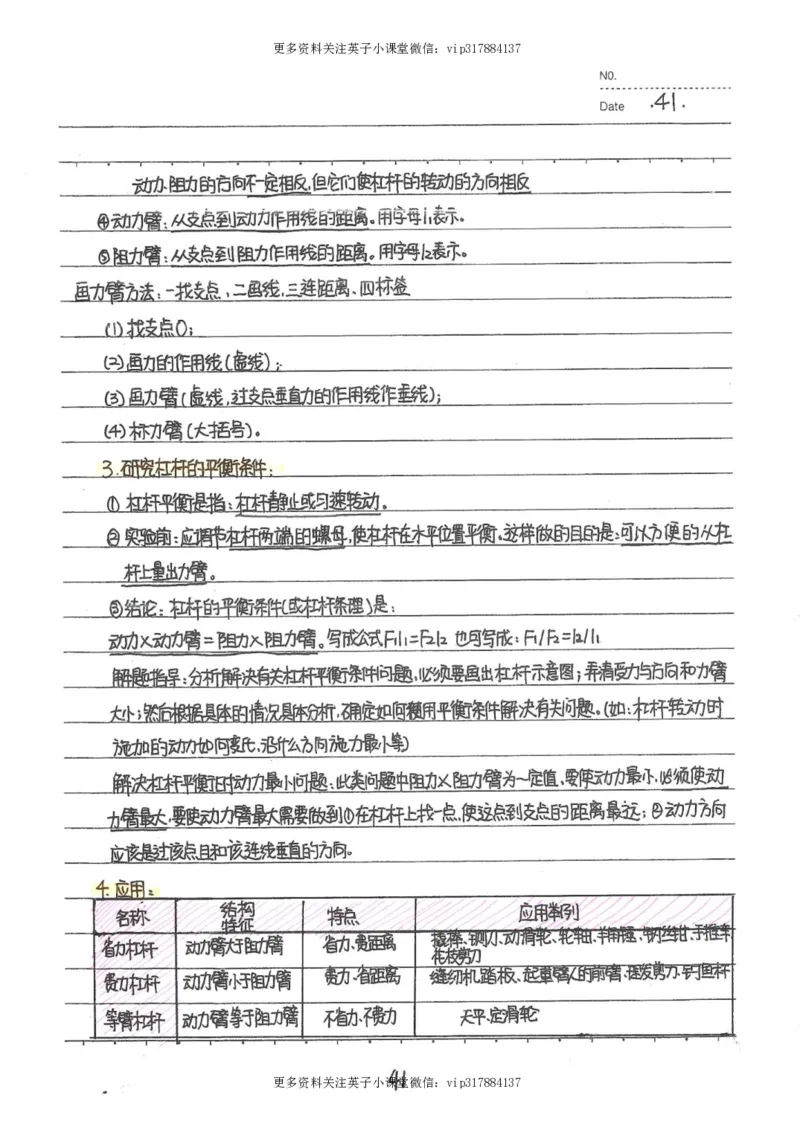 更多资料关注英子小课堂微信：vip317884137
NO.
Date .41.
动力、阻力的方向不一定相反,但它们使杠杆的转动的方向相反
④动力臂：从支点到动力作用线的距离。用字母l1表示。
⑤阻力臂：从支点到阻力作用线的距离。用字母l2表示。
画力臂方法：一找支点、二画线,三连距离、四标签
(1)找支点O;
(2)画力的作用线(虚线);
(3)画力臂(虚线,过支点垂直力的作用线作垂线);
(4)标力臂(大括号)。
3.研究杠杆的平衡条件:
①杠杆平衡是指：杠杆静止或匀速转动。
②实验前：应调节杠杆两端的螺母,使杠杆在水平位置平衡。这样做的目的是：可以方便的从杠
杆上量出力臂。
③结论：杠杆的平衡条件(或杠杆原理)是：
动力×动力臂=阻力×阻力臂。写成公式F1l1=F2l2 也可写成：F1/F2=l2/l1
解题指导：分析解决有关杠杆平衡条件问题,必须要画出杠杆示意图；弄清受力与方向和力臂
大小;然后根据具体的情况具体分析,确定如何利用平衡条件解决有关问题。(如:杠杆转动时
施加的动力如何变化,沿什么方向施力最小等)
解决杠杆平衡时动力最小问题：此类问题中阻力×阻力臂为一定值,要使动力最小,必须使动
力臂最大,要使动力臂最大需要做到①在杠杆上找一点,使这点到支点的距离最远；②动力方向
应该是过该点且和该连线垂直的方向。
4.应用：
名称 结构特征 特点 应用举例
省力杠杆 动力臂大于阻力臂 省力、费距离 撬棒、铡刀、动滑轮、轮轴、羊角锤、钢丝钳、手推车
花枝剪刀
费力杠杆 动力臂小于阻力臂 费力、省距离 缝纫机踏板、起重臂人的前臂、理发剪刀、钓鱼杆
等臂杠杆 动力臂等于阻力臂 不省力、不费力 天平、定滑轮
更多资料关注英子小课堂微信：vip317884137
41